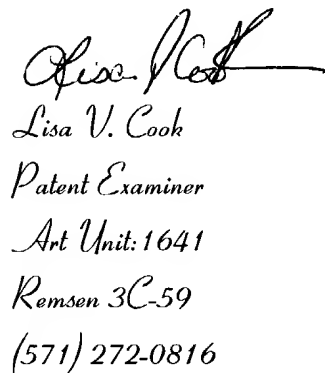 Lisa V. Cook
Lisa V. Cook
Patent Examiner
Art Unit: 1641
Remsen 3C-59
(571) 272-0816